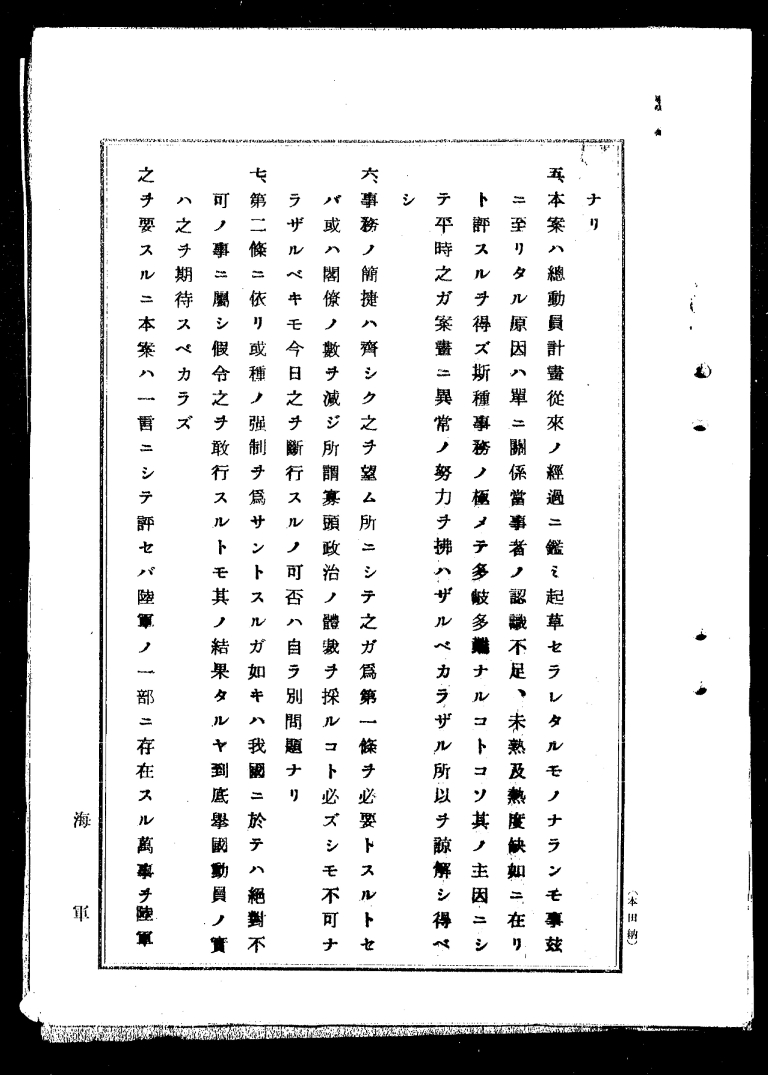 ナリ
五、本案ハ總動員計畫從來ノ經過ニ鑑ミ起草セラレタルモノナランモ事玆
ニ至リタル原因ハ單ニ關係當事者ノ認識不足、未熟及熱度缺如ニ在リ
ト評スルヲ得ズ斯種事務ノ極メテ多岐多難ナルコトコソ其ノ主因ニシ
テ平時之ガ案畫ニ異常ノ努力ヲ拂ハザルベカラザル所以ヲ諒解シ得ベ
シ
六、事務ノ簡捷ハ齊シク之ヲ望ム所ニシテ之ガ爲第一條ヲ必要トスルトセ
バ或ハ閣僚ノ數ヲ減ジ所謂寡頭政治ノ體裁ヲ採ルコト必ズシモ不可ナ
ラザルベキモ今日之ヲ斷行スルノ可否ハ自ラ別問題ナリ
七、第二條ニ依リ或種ノ强制ヲ爲サントスルガ如キハ我國ニ於テハ絕對不
可ノ事ニ屬シ假令之ヲ敢行スルトモ其ノ結果タルヤ到底擧國動員ノ實
ハ之ヲ期待スベカラズ
之ヲ要スルニ本案ハ一言ニシテ評セバ陸軍ノ一部ニ存在スル萬事ヲ陸軍
海軍
(本田納)